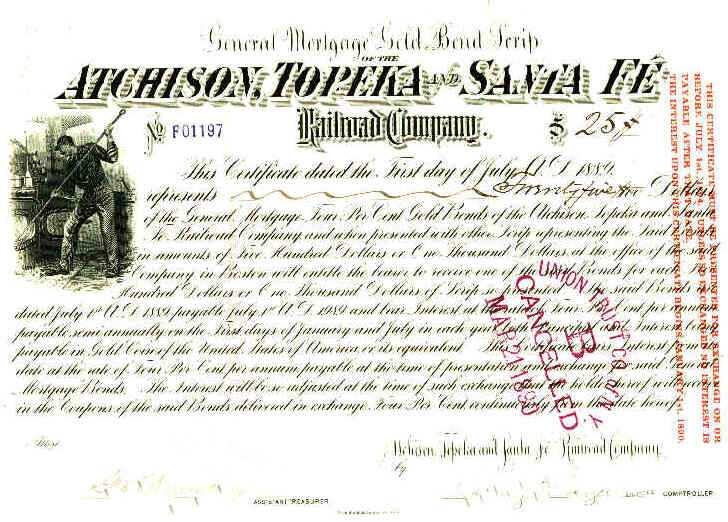 General Mortgage Gold Bond Scrip
OF THE
ATCHISON, TOPEKA AND SANTA FÉ
No F01197 Railroad Company. $ 25
This Certificate dated the First day of July A.D. 1889.
represents Twenty five Dollars
of the General Mortgage Four Per Cent Gold Bonds of the Atchison, Topeka and Santa
Fe Railroad Company and when presented with other Scrip representing the Said Bonds
in amounts of Five Hundred Dollars or One Thousand Dollars at the office of the said
Company in Boston will entitle the bearer to receive one of said Bonds for each Five
Hundred Dollars or One Thousand Dollars of Scrip so presented. The said Bonds are
dated July 1st A.D. 1889 payable July 1st A.D. 1989 and bear Interest at the rate of Four Per Cent per annum
payable semi annually on the First days of January and July in each year both Principal and Interest being
payable in Gold Coin of the United States of America or its equivalent. This Scrip bears interest from its
date at the rate of Four Per Cent per annum payable at the time of presentation for exchange for said General
Mortgage Bonds. The Interest will be adjusted at the time of such exchange and the holder thereof will receive
in the Coupons of the said Bonds delivered in exchange Four Per Cent continuously from the date hereof.
Atchison, Topeka and Santa Fe Railroad Company
by
ASSISTANT TREASURER
COMPTROLLER
UNION TRUST CO. OF N.Y.
B
CANCELLED
MAR 21 1890
THIS CERTIFICATE MUST BE PRESENTED FOR EXCHANGE ON OR
BEFORE JULY 1st, 1894, UNLESS SO EXCHANGED NO INTEREST IS
PAYABLE AFTER THAT DATE.
THE INTEREST UPON THIS CERTIFICATE BEGINS JANUARY 1st, 1890.